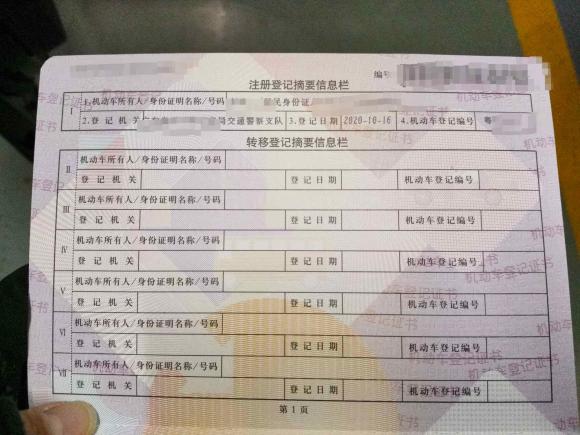 编号
注册登记摘要信息栏
I 1.机动车所有人/身份证明名称/号码 居民身份证
2.登记机关 局交通警察支队 3.登记日期 2020-10-16 4.机动车登记编号 粤
转移登记摘要信息栏
II 机动车所有人/身份证明名称/号码
登记机关 登记日期 机动车登记编号
III 机动车所有人/身份证明名称/号码
登记机关 登记日期 机动车登记编号
IV 机动车所有人/身份证明名称/号码
登记机关 登记日期 机动车登记编号
V 机动车所有人/身份证明名称/号码
登记机关 登记日期 机动车登记编号
VI 机动车所有人/身份证明名称/号码
登记机关 登记日期 机动车登记编号
VII 机动车所有人/身份证明名称/号码
登记机关 登记日期 机动车登记编号
第1页